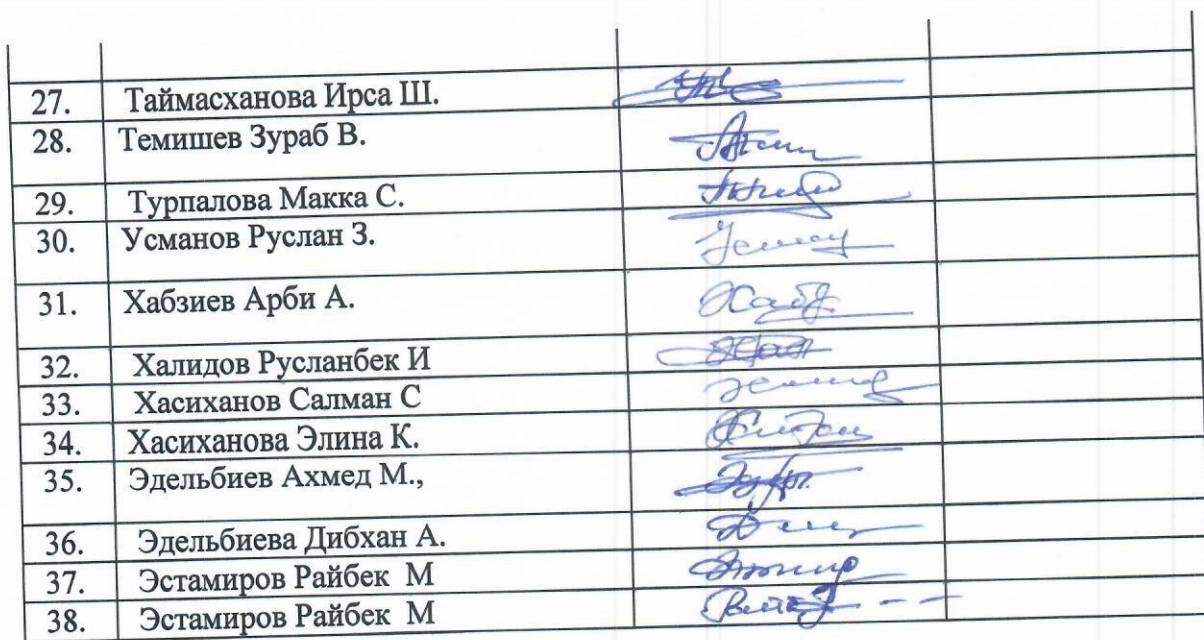 27. Таймасханова Ирса Ш.
28. Темишев Зураб В.
29. Турпалова Макка С.
30. Усманов Руслан З.
31. Хабзиев Арби А.
32. Халидов Русланбек И
33. Хасиханов Салман С
34. Хасиханова Элина К.
35. Эдельбиев Ахмед М.,
36. Эдельбиева Дибхан А.
37. Эстамиров Райбек М
38. Эстамиров Райбек М